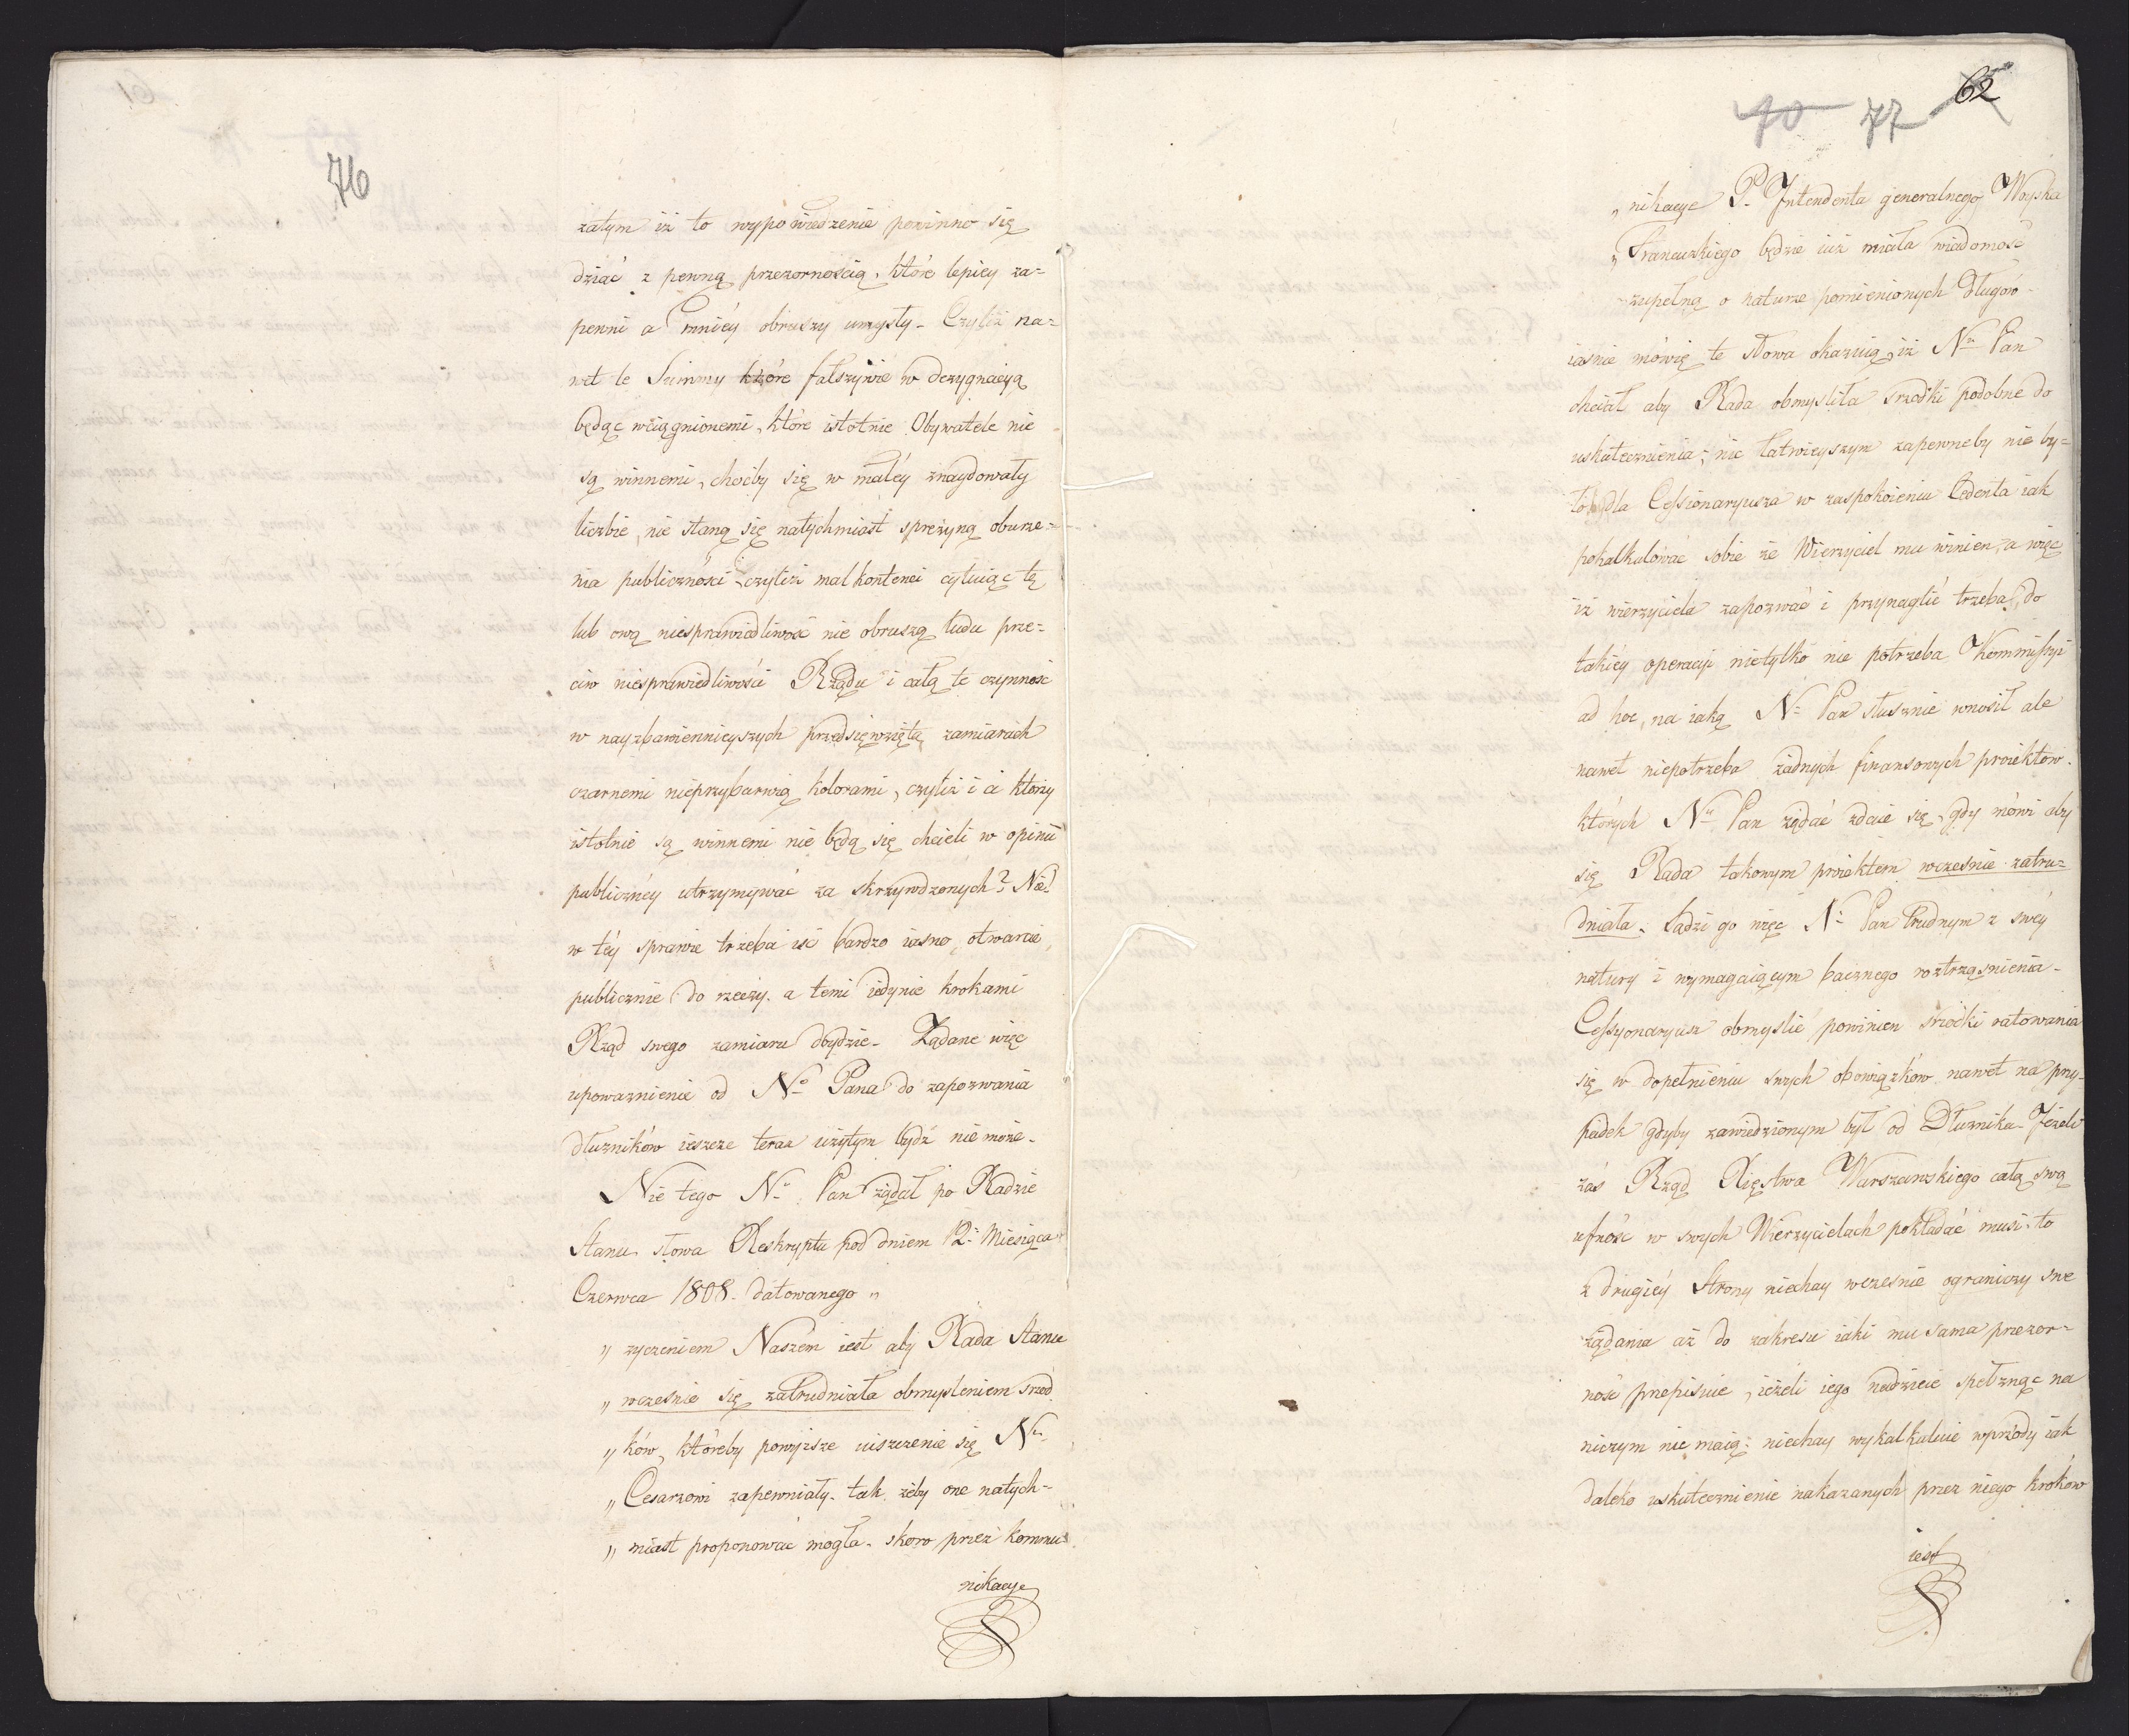 76
zatym iż to wypowiedzenie powinno się
dziać z pewną przezornością, które lepiey za-
pewni a mniéy obruszy umysły. Czyliż na-
wet te Summy które fałszywie w dezygnacyą
będąc wciągnionemi, które istotnie Obywatele nie
są winnemi, choćby się w małéy znaydowały
liczbie, nie staną się natychmiast sprężyną oburze-
nia publiczności, czyliż malkontenci cytuiąc tę
lub ową niesprawiedliwość nie obruszą ludu prze-
ciw niesprawiedliwości Rządu i całą te czynność
w nayzbawiennieyszych przedsięwziętą zamiarach
czarnemi nieprzybarwią kolorami, czyliż i ci którzy
istotnie są winnemi nie będą się chcieli w opinii
publicznéy utrzymywać za skrzywdzonych? Nie!
w téy sprawie trzeba iść bardzo iasno, otwarcie,
publicznie do rzeczy, a temi iedynie krokami
Rząd swego zamiaru doydzie. Żądane więc
upoważnienie od No Pana do zapozwania
dłużników ieszcze teraz użytym bydź nie może.
Nie tego Ny Pan żądał po Radzie
Stanu, słowa Reskryptu pod dniem 12. Miesiąca
Czerwca 1808. datowanego „
„ życzeniem Naszém iest aby Rada Stanu
„ wcześnie się zatrudniała obmyśleniem śrzod
„ ków, któreby powyższe uiszczenie się Nu
„ Cesarzowi zapewniały, tak żeby one natych-
„ miast proponować mogła, skoro przez kommu
nikacye
40 77 62
„ nikacye P. Intendenta generalnego Woyska
„ Francuzkiego będzie iuż miała wiadomość
zupełną o naturze pomienionych Długów
iasnie mówię te słowa okazuią, iż Ny Pan
chciał aby Rada obmyśliła śrzodki podobne do
uskutecznienia; nic łatwieyszym zapewneby nie by-
ło dla Cessionaryusza w zaspokoieniu Cedenta iak
pokalkulować sobie że Wierzyciel mu winien, a więc
iż wierzyciela zapozwać i przynaglić trzeba, do
takiéy operacyi nietylko nie potrzeba Kommissyi
ad hoc, na iaką Ny Pan słusznie wnosił ale
nawet niepotrzeba żadnych finansowych proiektów,
których Ny Pan żądać zdaie się, gdy mówi aby
się Rada takowym proiektem wcześnie zatru-
dniała. Sądzi go więc Ny Pan trudnym z swéy
natury i wymagaiącym bacznego roztrząśnienia.
Cessyonaryusz obmyślić powinien śrzodki ratowania
się w dopełnieniu swych obowiązków nawet na przy-
padek gdyby zawiedzionym był od Dłużnika. Jeżeli
zaś Rząd Xięstwa Warszawskiego całą swą
ufność w swych Wierzycielach pokładać musi, to
z drugiéy Strony niechay wcześnie ograniczy swe
żądania aż do zakresu iaki mu sama przezor-
ność przepisuie, ieżeli iego nadzieie spełznąć na
niczym nie maią; niechay wykalkuluie wprzódy iak
daleko uskutecznienie nakazanych przez niego kroków
iest